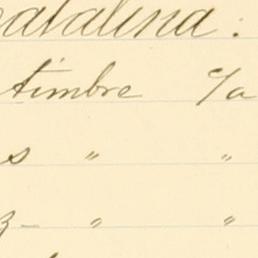 atalina :
timbre c/a
s " "
z — " "